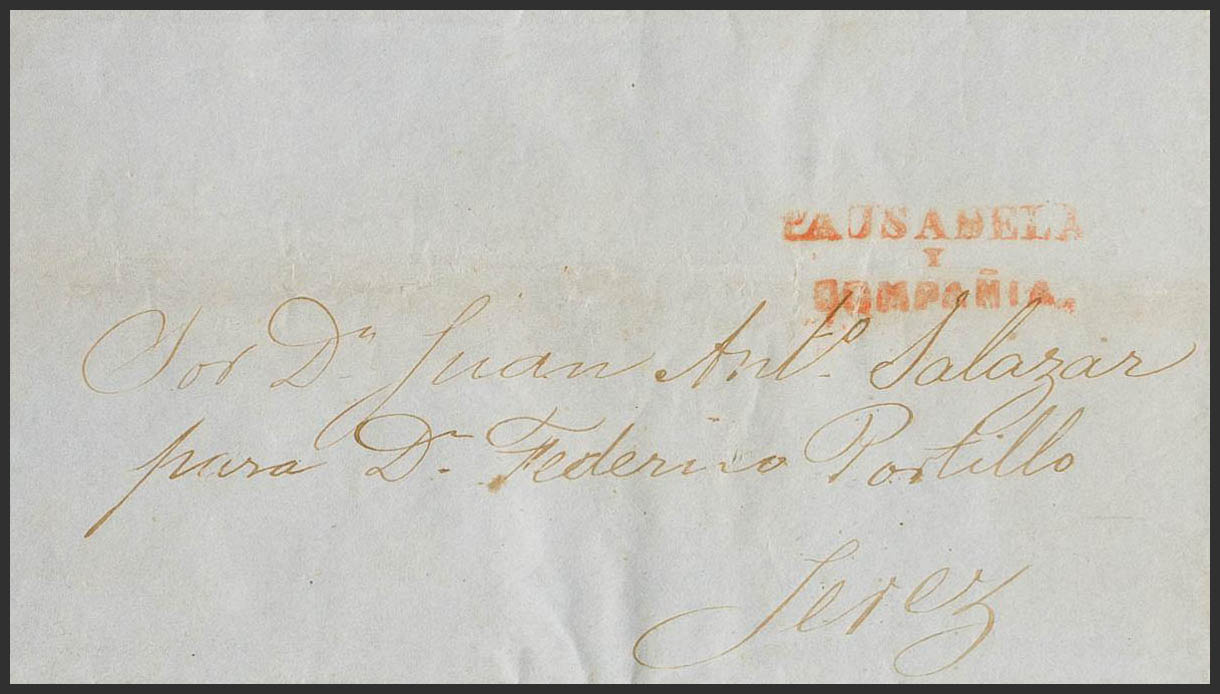 PAUSADELA
Y
COMPAÑIA.
Sor Dn. Juan Anto. Salazar
para Dn. Federico Portillo
Jerez